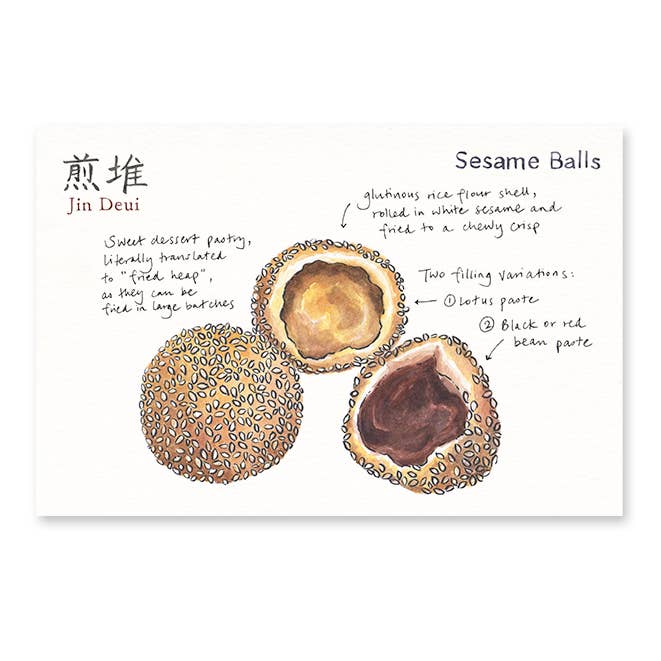 煎堆
Jin Deui
Sesame Balls
Sweet dessert pastry,
literally translated
to "fried heap",
as they can be
fried in large batches
glutinous rice flour shell,
rolled in white sesame and
fried to a chewy crisp
Two filling variations:
① Lotus paste
② Black or red
bean paste